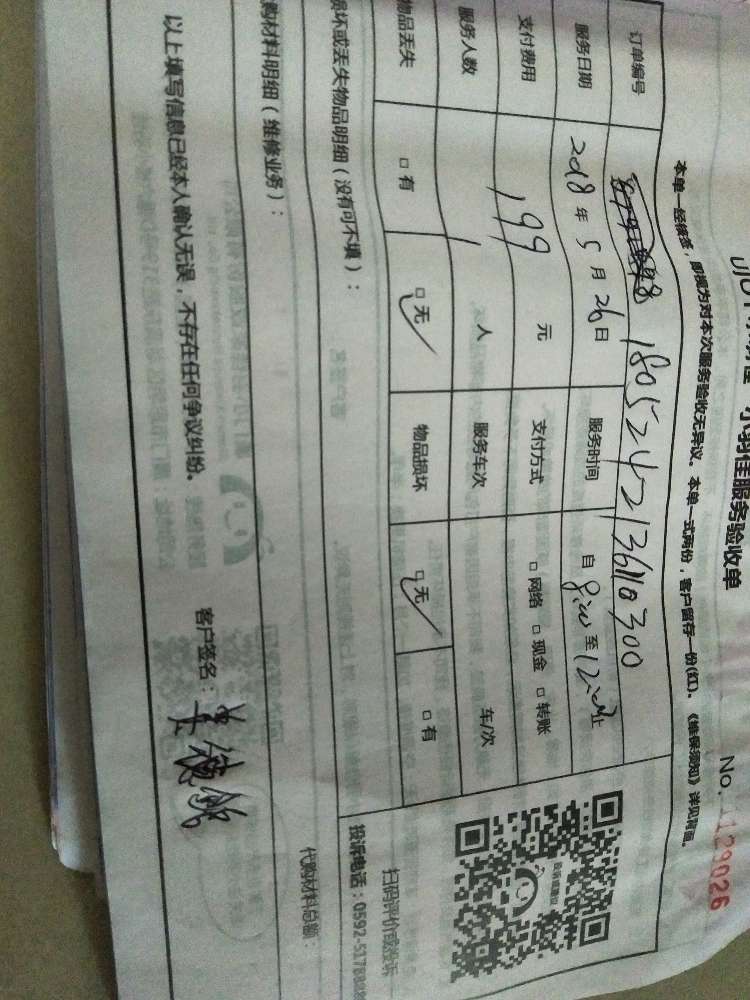 小羽佳服务验收单
No.
1129026
本单一经签多，即视为对本次服务验收无异议。本单一式两份，客户留存一份(红)。《维保须知》详见背面。
订单编号 180524213611 0300
服务日期 2018 年 5 月 26 日 服务时间 自 8:00 至 12:00 止
支付费用 199 元 支付方式 □ 网络 □ 现金 □ 转账
服务人数 1 人 服务车次 车/次
物品丢失 □ 有 □ 无 ✓ 物品损坏 □ 无 ✓ □ 有
扫码评价或投诉
损坏或丢失物品明细（没有可不填）：
投诉电话：0592-5178888
购材料明细（维修业务）：
代购材料总额：
以上填写信息已经本人确认无误，不存在任何争议纠纷。
客户签名：